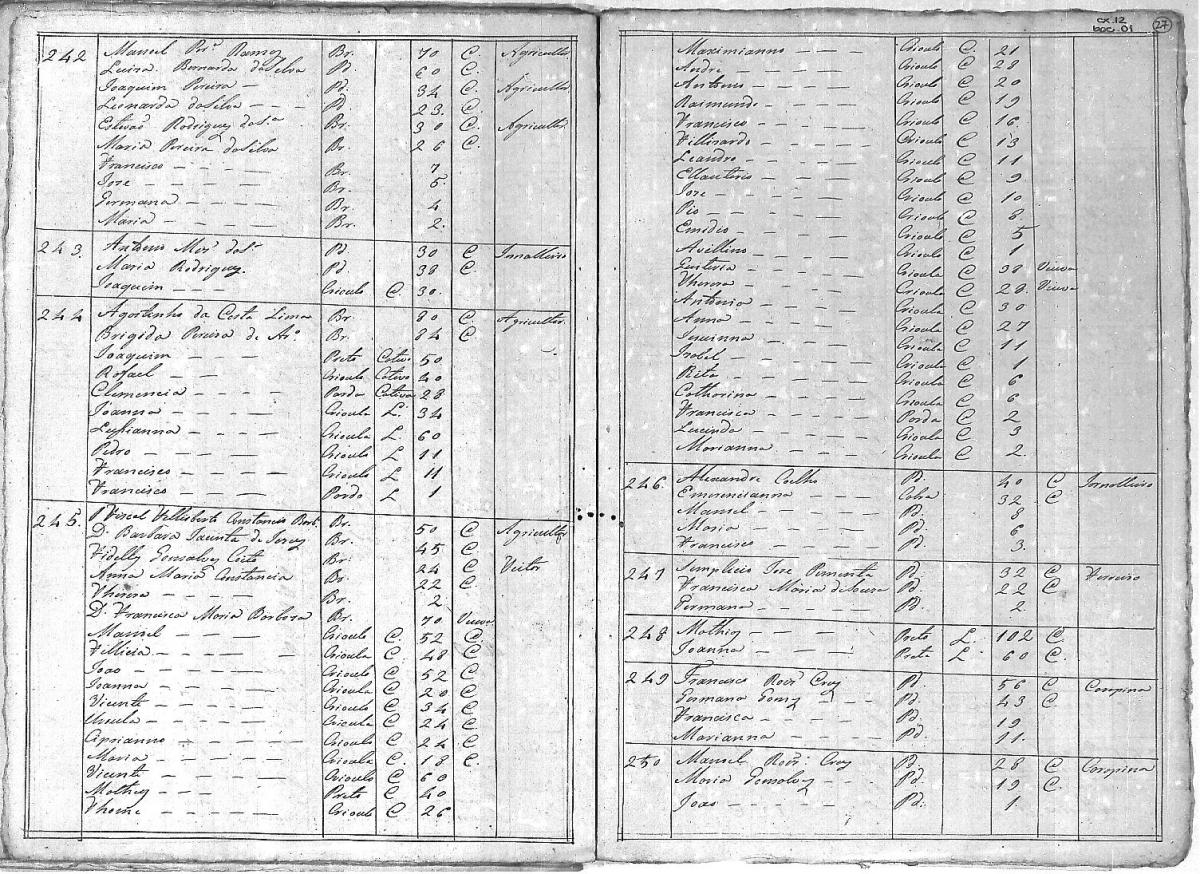 cx.12
27
doc. 01
242 Manoel Per.ª Ramos Br. 70 C. Agricultor
Luiza Bernarda da Silva Pd. 60 C.
Joaquim Pereira — Pd. 34 C. Agricultor
Leonarda da Silva — — — Pd. 23. C.
Estevaõ Rodriguez da S.ª Br. 30 C. Agricultor
Maria Pereira da Silva Br. 26 C.
Francisco — — — — Br. 7
Jose — — — — — Br. 5.
Germana — — — — — Br. 4
Maria — — — — Br. 2.
243. Antonio da S.ª Pd. 30 C. Jornalleiro
Maria Rodriguez. Pd. 38 C.
Joaquim — — — Crioulo C. 30.
244 Agostinho da Costa Lima Br. 80 C. Agricultor.
Brigida Pereira de Br. 84 C
Joaquim — — Preto Cativo 50
Rafael — — — Crioulo Cativo 40
Clemencia — — — Parda Cativa 28
Joanna — — — — Crioula L. 34
— — — — Crioula L. 60
Pedro — — — — Crioulo L 11
Francisco — — — — Crioulo L 11
Francisco — — — — Pardo L 1
245. Constancio Barb. Br. 50 C. Agricultor
D. Barbara Jacinta de Br. 45 C.
Fidelly Gonsalves Br. 24 C Feitor
Anna Maria Constancia Br. 22 C.
Thereza — — — — Br. 2
D. Francisca Maria Barboza Br. 70 Viuva
Manoel — — — — Crioulo C. 52 C.
Fillicia — — — — Crioula C. 48 C.
Joao — — — — — Crioulo C. 52 C
Joanna — — — — Crioula C 20 C
Vicente — — — — Crioulo C 34 C
Ursula — — — — Crioula C 24 C
Ciprianno — — — — Crioulo C 24 C
Maria — — — — — Crioula C. 18 C.
Vicente — — — — Crioulo C 60
Mathey — — — — Preto C 40
Thome — — — — Crioulo C 26
Maximianno — — Crioulo C. 21
Andre — — — — Crioulo C 28
Antonio — — — — Crioulo C 20
Raimundo — — — Crioulo C 19
Francisco — — — — Crioulo C 16
— — — — Crioulo C 13
Leandro — — — — Crioulo C 11
— — — — Crioulo C 9
Jose — — — — Crioulo C 10
Pio — — — — — Crioulo C 8
Emidio — — — — Crioulo C 5
Avellino — — — — Crioulo C 1
— — — — Crioula C 38 Viuva
Thereza — — — — Crioula C 28 Viuva
Antonia — — — — Crioula C 30
Anna — — — — Crioula C 27
— — — — Crioula C 11
Izabel — — — — Crioula C 1
Rita — — — — Crioula C 6
Catharina — — — Crioula C 6
Francisca — — — Parda C 2
Lucinda — — — — Crioula C 3
Marianna — — — Crioula C 2.
246. Alexandre Coelho Pd. 40 C Jornalleiro
Emerencianna — — Cabra 32 C
Manoel — — — — Pd. 8
Maria — — — — — Pd. 6
Francisco — — — — Pd. 3.
247 Simplicio Jose Pimenta Pd. 32 C Ferreiro
Francisca Maria de Souza Pd. 22 C
Germana — — — — Pd. 2
248 Mathias — — — — Preto L. 102 C.
Joanna — — — — Preta L. 60 C.
249 Francisco Rodr.ª Cruz Pd. 56 C Carpina
Germana — — Pd. 43 C
Francisca — — — — Pd. 19
Marianna — — — — Pd. 11.
250 Manoel Rodr.ª Cruz Pd. 28 C Carpina
Maria Gonsalvez Pd. 19 C.
Joao — — — — — Pd. 1.